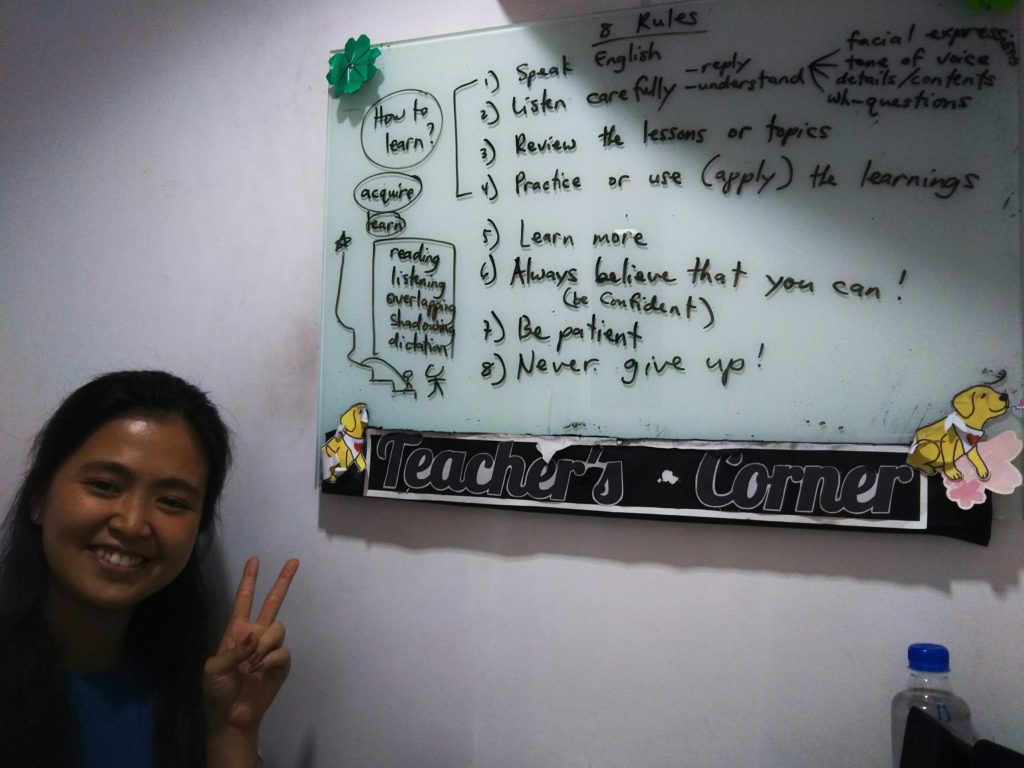 8 Rules
1) Speak English
2) Listen carefully - reply
- understand
facial expressions
tone of voice
details/contents
wh-questions
3) Review the lessons or topics
4) Practice or use (apply) the learnings
5) Learn more
6) Always believe that you can!
(be confident)
7) Be patient
8) Never give up!
How to
learn?
acquire
learn
reading
listening
overlapping
shadowing
dictation
Teacher's Corner